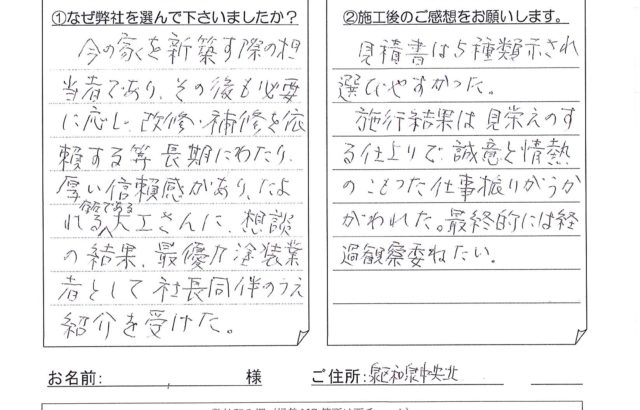 ①なぜ弊社を選んで下さいましたか？
今の家を新築する際の担
当者であり、その後も必要
に応じ、改修・補修を依
頼する等長期にわたり、
厚い信頼感があり、たよ
れる大工さんに、想談
の結果、最優力塗装業
者として社長同伴のうえ
紹介を受けた。
②施工後のご感想をお願いします。
見積書は5種類示され
選びやすかった。
施行結果は見栄えのす
る仕上りで、誠意と情熱
のこもった仕事振りがうか
がわれた。最終的には経
過観察委ねたい。
お名前:
様
ご住所:
泉区和泉中央北